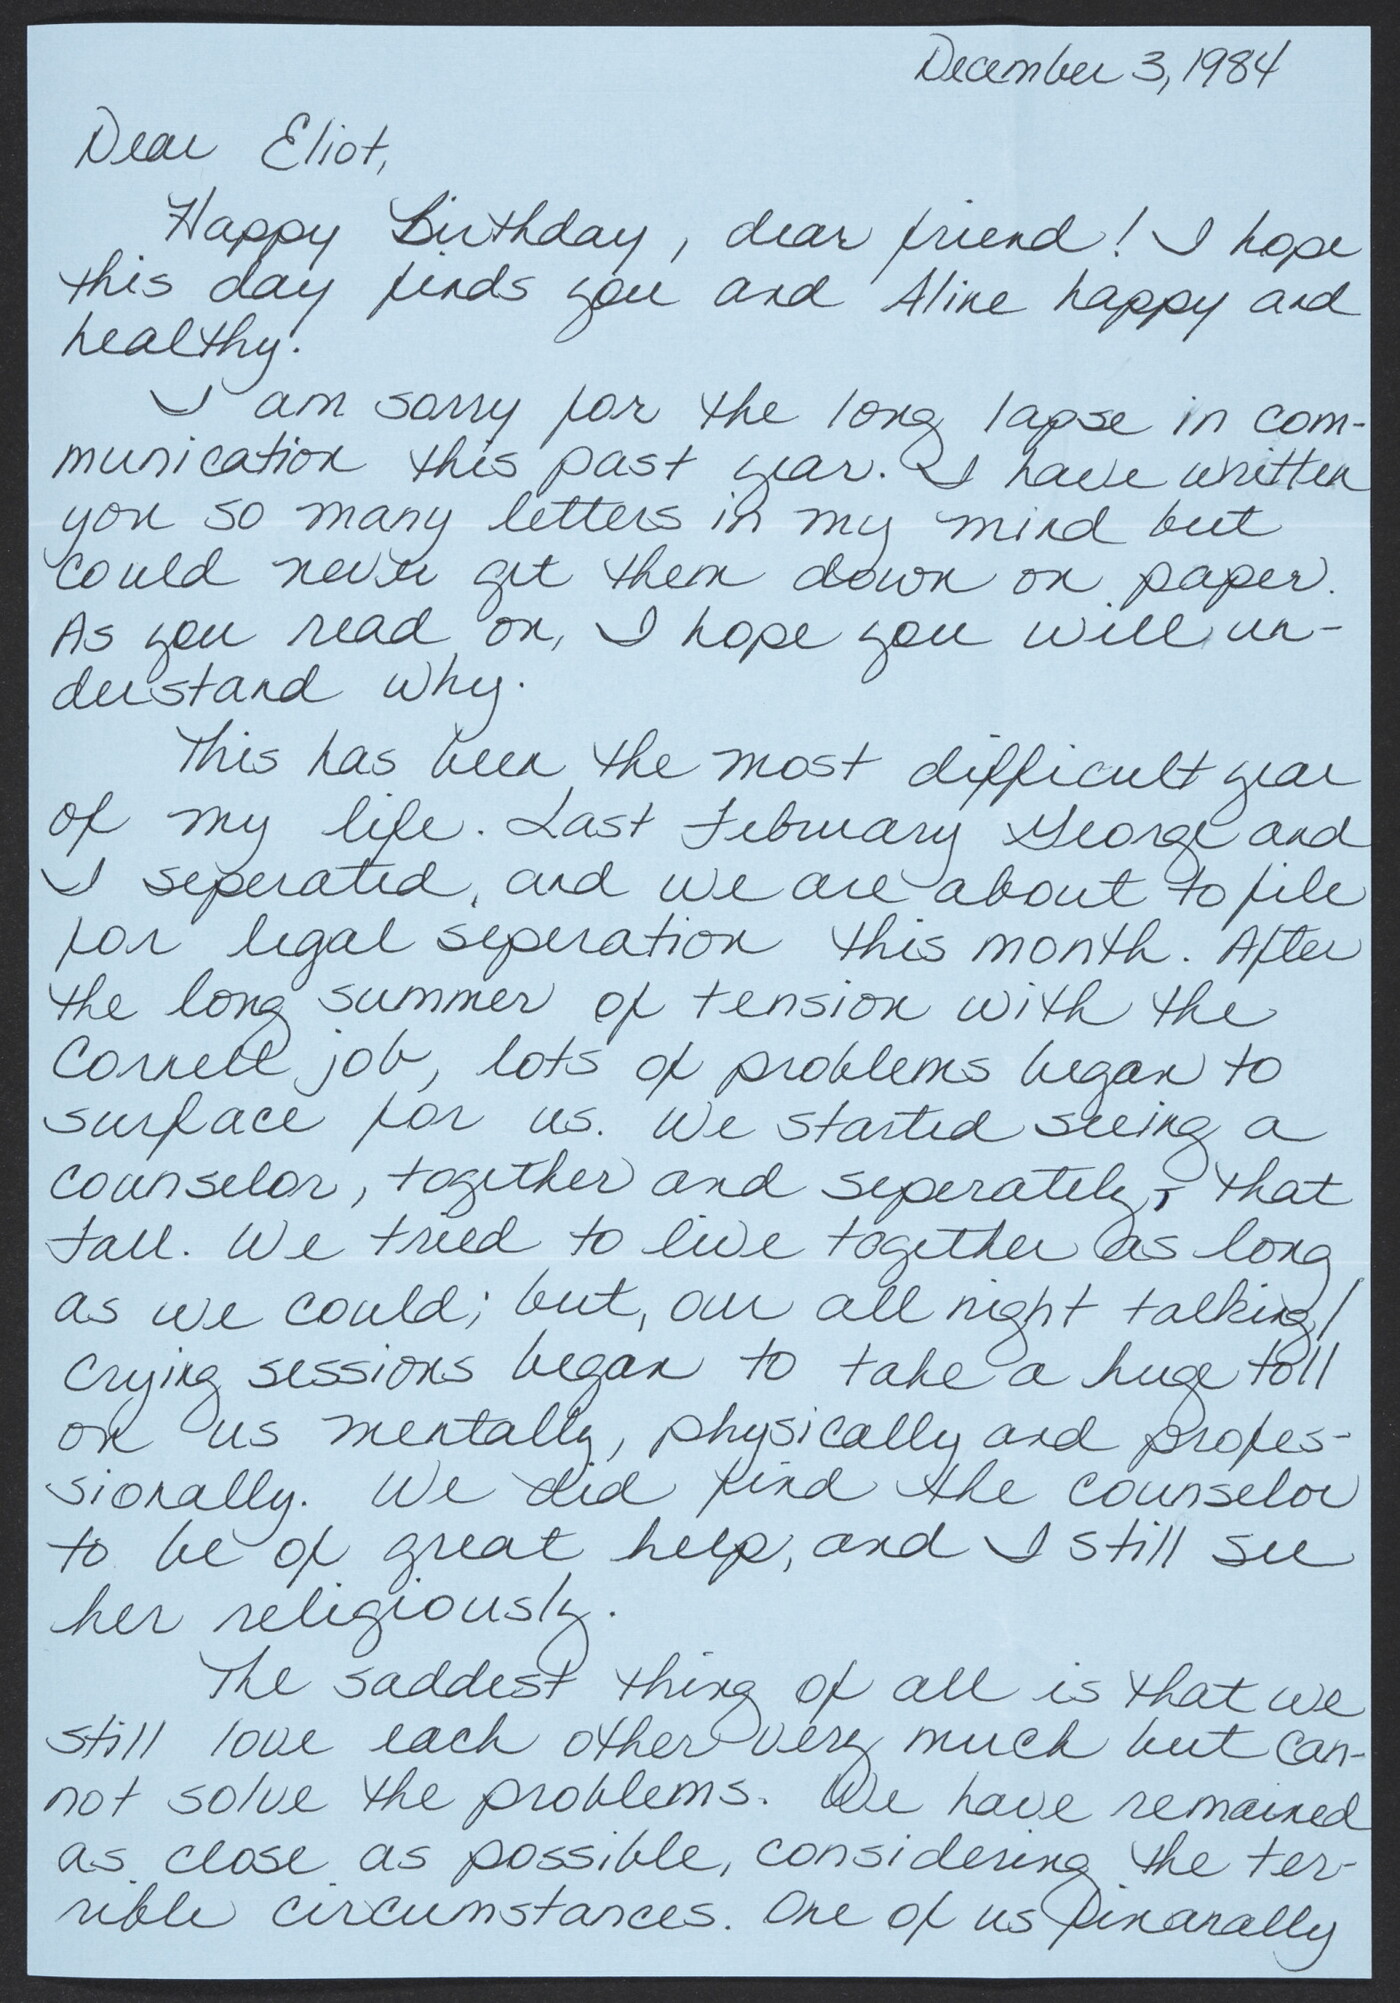 December 3, 1984
Dear Eliot,
Happy Birthday, dear friend! I hope
this day finds you and Aline happy and
healthy.
I am sorry for the long lapse in com-
munication this past year. I have written
you so many letters in my mind but
could never get them down on paper.
As you read on, I hope you will un-
derstand why.
This has been the most difficult year
of my life. Last February George and
I seperated, and we are about to file
for legal seperation this month. After
the long summer of tension with the
Cornell job, lots of problems began to
surface for us. We started seeing a
counselor, together and seperately, that
fall. We tried to live together as long
as we could; but, our all night talking/
crying sessions began to take a huge toll
on us mentally, physically and profes-
sionally. We did find the counselor
to be of great help, and I still see
her religiously.
The saddest thing of all is that we
still love each other very much but can-
not solve the problems. We have remained
as close as possible, considering the ter-
rible circumstances. One of us finanally